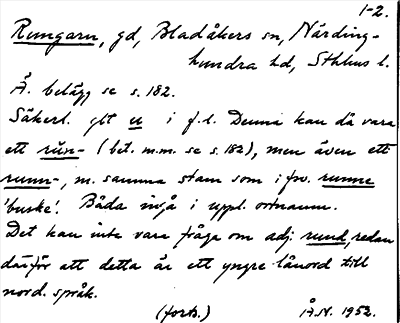 1-2.
Rumgarn, gd, Bladåkers sn, Närding-
hundra hd, Sthlms l.
Å. belägg se s. 182.
Säkerl. gtt u i f.l. Denna kan då vara
ett rūn- (bet. m.m. se s. 182), men även ett
runn-, m. samma stam som i fsv. runne
'buske'. Båda ingå i uppl. ortnamn.
Det kan inte vara fråga om adj. rund, redan
därför att detta är ett yngre lånord till
nord. språk.
(forts.) Å.N. 1952.